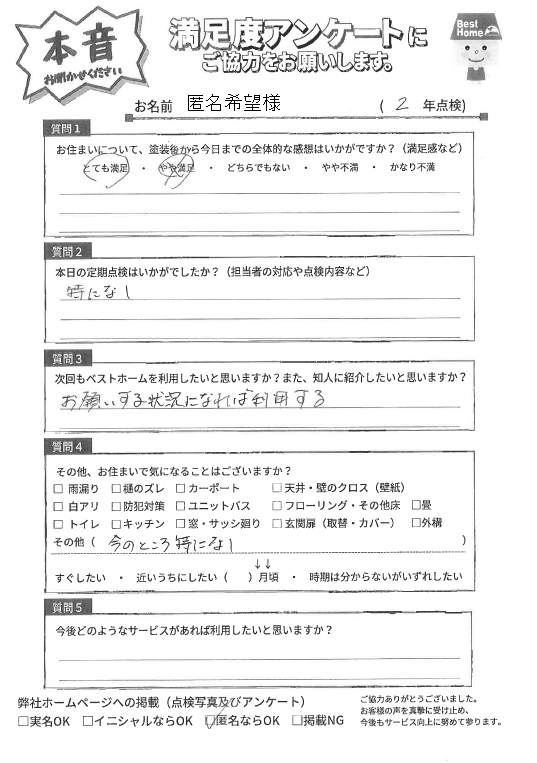 本音
お聞かせください
満足度アンケートに
ご協力をお願いします。
Best
Home
お名前 匿名希望様 ( 2 年点検)
質問1
お住まいについて、塗装後から今日までの全体的な感想はいかがですか？（満足感など）
とても満足 ・ やや満足 ・ どちらでもない ・ やや不満 ・ かなり不満
質問2
本日の定期点検はいかがでしたか？（担当者の対応や点検内容など）
特になし
質問3
次回もベストホームを利用したいと思いますか？また、知人に紹介したいと思いますか？
お願いする状況になれば利用する
質問4
その他、お住まいで気になることはございますか？
□ 雨漏り □ 樋のズレ □ カーポート □ 天井・壁のクロス（壁紙）
□ 白アリ □ 防犯対策 □ ユニットバス □ フローリング・その他床 □畳
□ トイレ □ キッチン □ 窓・サッシ廻り □ 玄関扉（取替・カバー） □外構
その他（ 今のところ特になし ）
↓↓
すぐしたい ・ 近いうちにしたい（ ）月頃 ・ 時期は分からないがいずれしたい
質問5
今後どのようなサービスがあれば利用したいと思いますか？
弊社ホームページへの掲載（点検写真及びアンケート）
□実名OK □イニシャルならOK ☑匿名ならOK □掲載NG
ご協力ありがとうございました。
お客様の声を真摯に受け止め、
今後もサービス向上に努めて参ります。